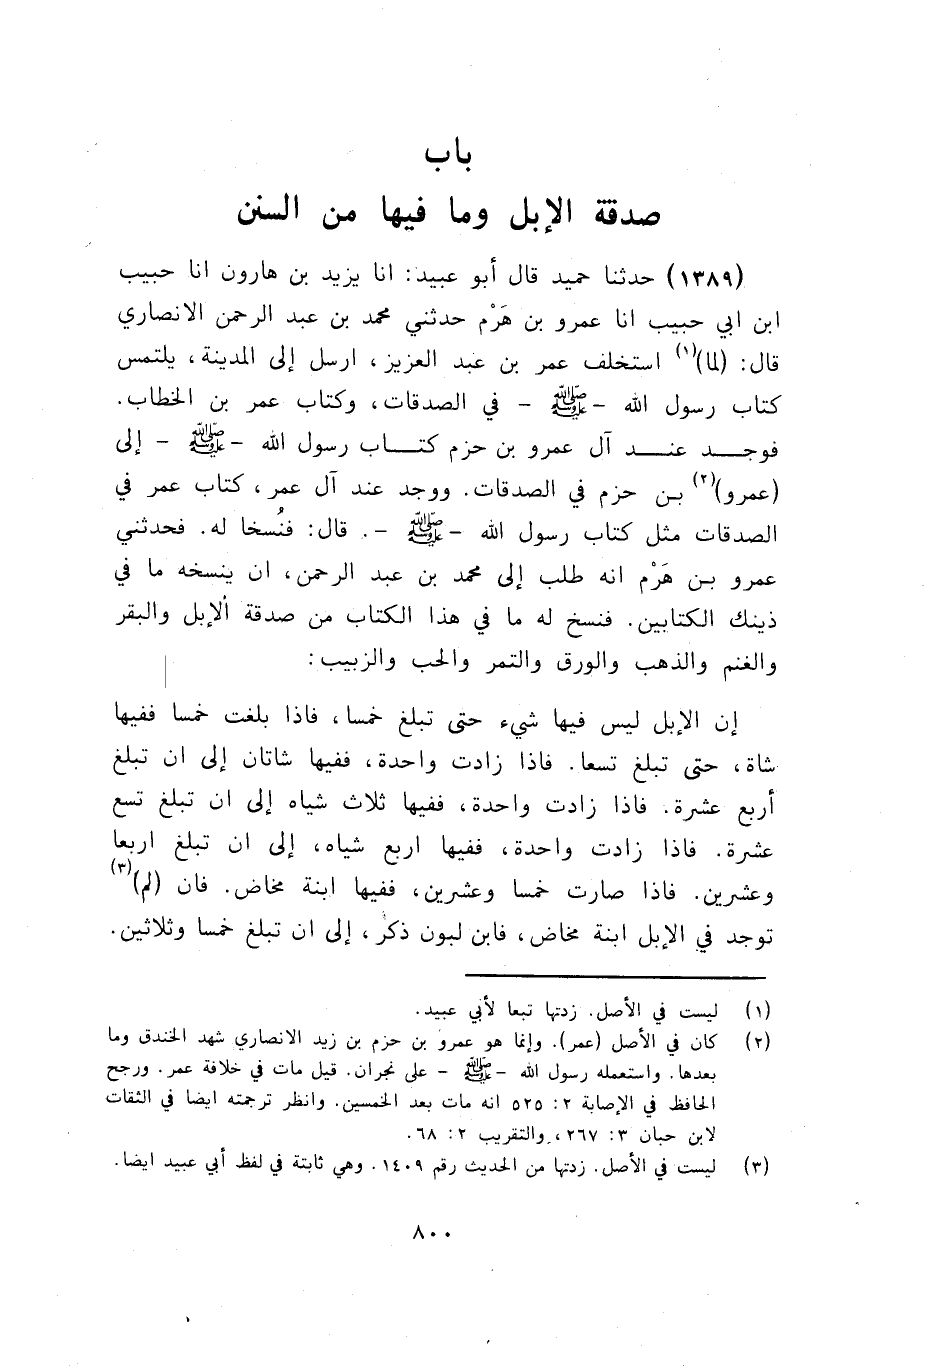 باب
صدقة الإبل وما فيها من السنن
(١٣٨٩) حدثنا حميد قال أبو عبيد: انا يزيد بن هارون انا حبيب
ابن ابي حبيب انا عمرو بن هَرْم حدثني محمد بن عبد الرحمن الانصاري
قال: (لما)(١) استخلف عمر بن عبد العزيز، ارسل إلى المدينة، يلتمس
كتاب رسول الله -ﷺ- في الصدقات، وكتاب عمر بن الخطاب.
فوجد عند آل عمرو بن حزم كتاب رسول الله -ﷺ- إلى
(عمرو)(٢) بن حزم في الصدقات. ووجد عند آل عمر، كتاب عمر في
الصدقات مثل كتاب رسول الله -ﷺ-. قال: فنُسخا له. فحدثني
عمرو بن هَرْم انه طلب إلى محمد بن عبد الرحمن، ان ينسخه ما في
ذينك الكتابين. فنسخ له ما في هذا الكتاب من صدقة ألإبل والبقر
والغنم والذهب والورق والتمر والحب والزبيب:
إن الإبل ليس فيها شيء حتى تبلغ خمسا، فاذا بلغت خمسا ففيها
شاة، حتى تبلغ تسعا. فاذا زادت واحدة، ففيها شاتان إلى ان تبلغ
أربع عشرة. فاذا زادت واحدة، ففيها ثلاث شياه إلى ان تبلغ تسع
عشرة. فاذا زادت واحدة، ففيها اربع شياه، إلى ان تبلغ اربعا
وعشرين. فاذا صارت خمسا وعشرين، ففيها ابنة مخاض. فان (لم)(٣)
توجد في الإبل ابنة مخاض، فابن لبون ذكر، إلى ان تبلغ خمسا وثلاثين.
(١) ليست في الأصل. زدتها تبعا لأبي عبيد.
(٢) كان في الأصل (عمر). وإنما هو عمرو بن حزم بن زيد الانصاري شهد الخندق وما
بعدها. واستعمله رسول الله -ﷺ- على نجران. قيل مات في خلافة عمر. ورجح
الحافظ في الإصابة ٢: ٥٢٥ انه مات بعد الخمسين. وانظر ترجمته ايضا في الثقات
لابن حبان ٣: ٢٦٧، والتقريب ٢: ٦٨.
(٣) ليست في الأصل. زدتها من الحديث رقم ١٤٠٩. وهي ثابتة في لفظ أبي عبيد ايضا.
٨٠٠